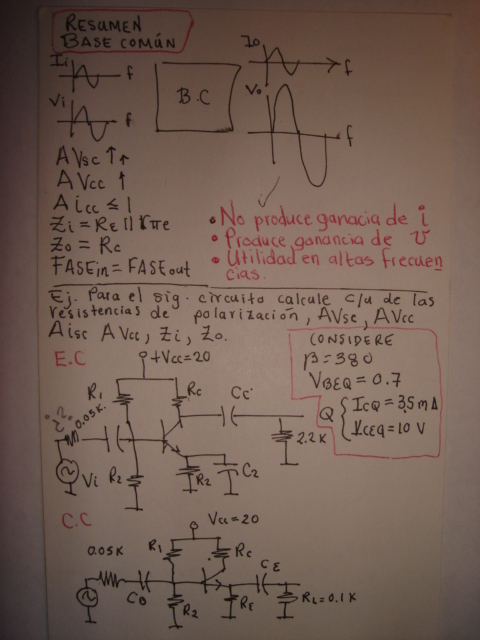 RESUMEN
BASE COMÚN
Ii
f
Vi
f
B.C
Io
f
Vo
f
AVsc ↑↑
AVcc ↑
Aicc ≤ 1
Zi = RE || rπe
Zo = Rc
FASEin = FASEout
• No produce ganacia de i
• Produce ganancia de v
• Utilidad en altas frecuen
cias.
Ej. Para el sig. circuito calcule c/u de las
resistencias de polarización, AVsc, AVcc
Aisc AVcc, Zi, Zo.
CONSIDERE
β = 380
VBEQ = 0.7
Q { ICQ = 3.5 mA
VCEQ = 10 V
E.C
+Vcc = 20
R1
Rc
Cc
0.05K
2.2K
Vi
R2
R2
C2
C.C
Vcc = 20
0.05K
R1
Rc
CB
R2
RE
CE
RL = 0.1K